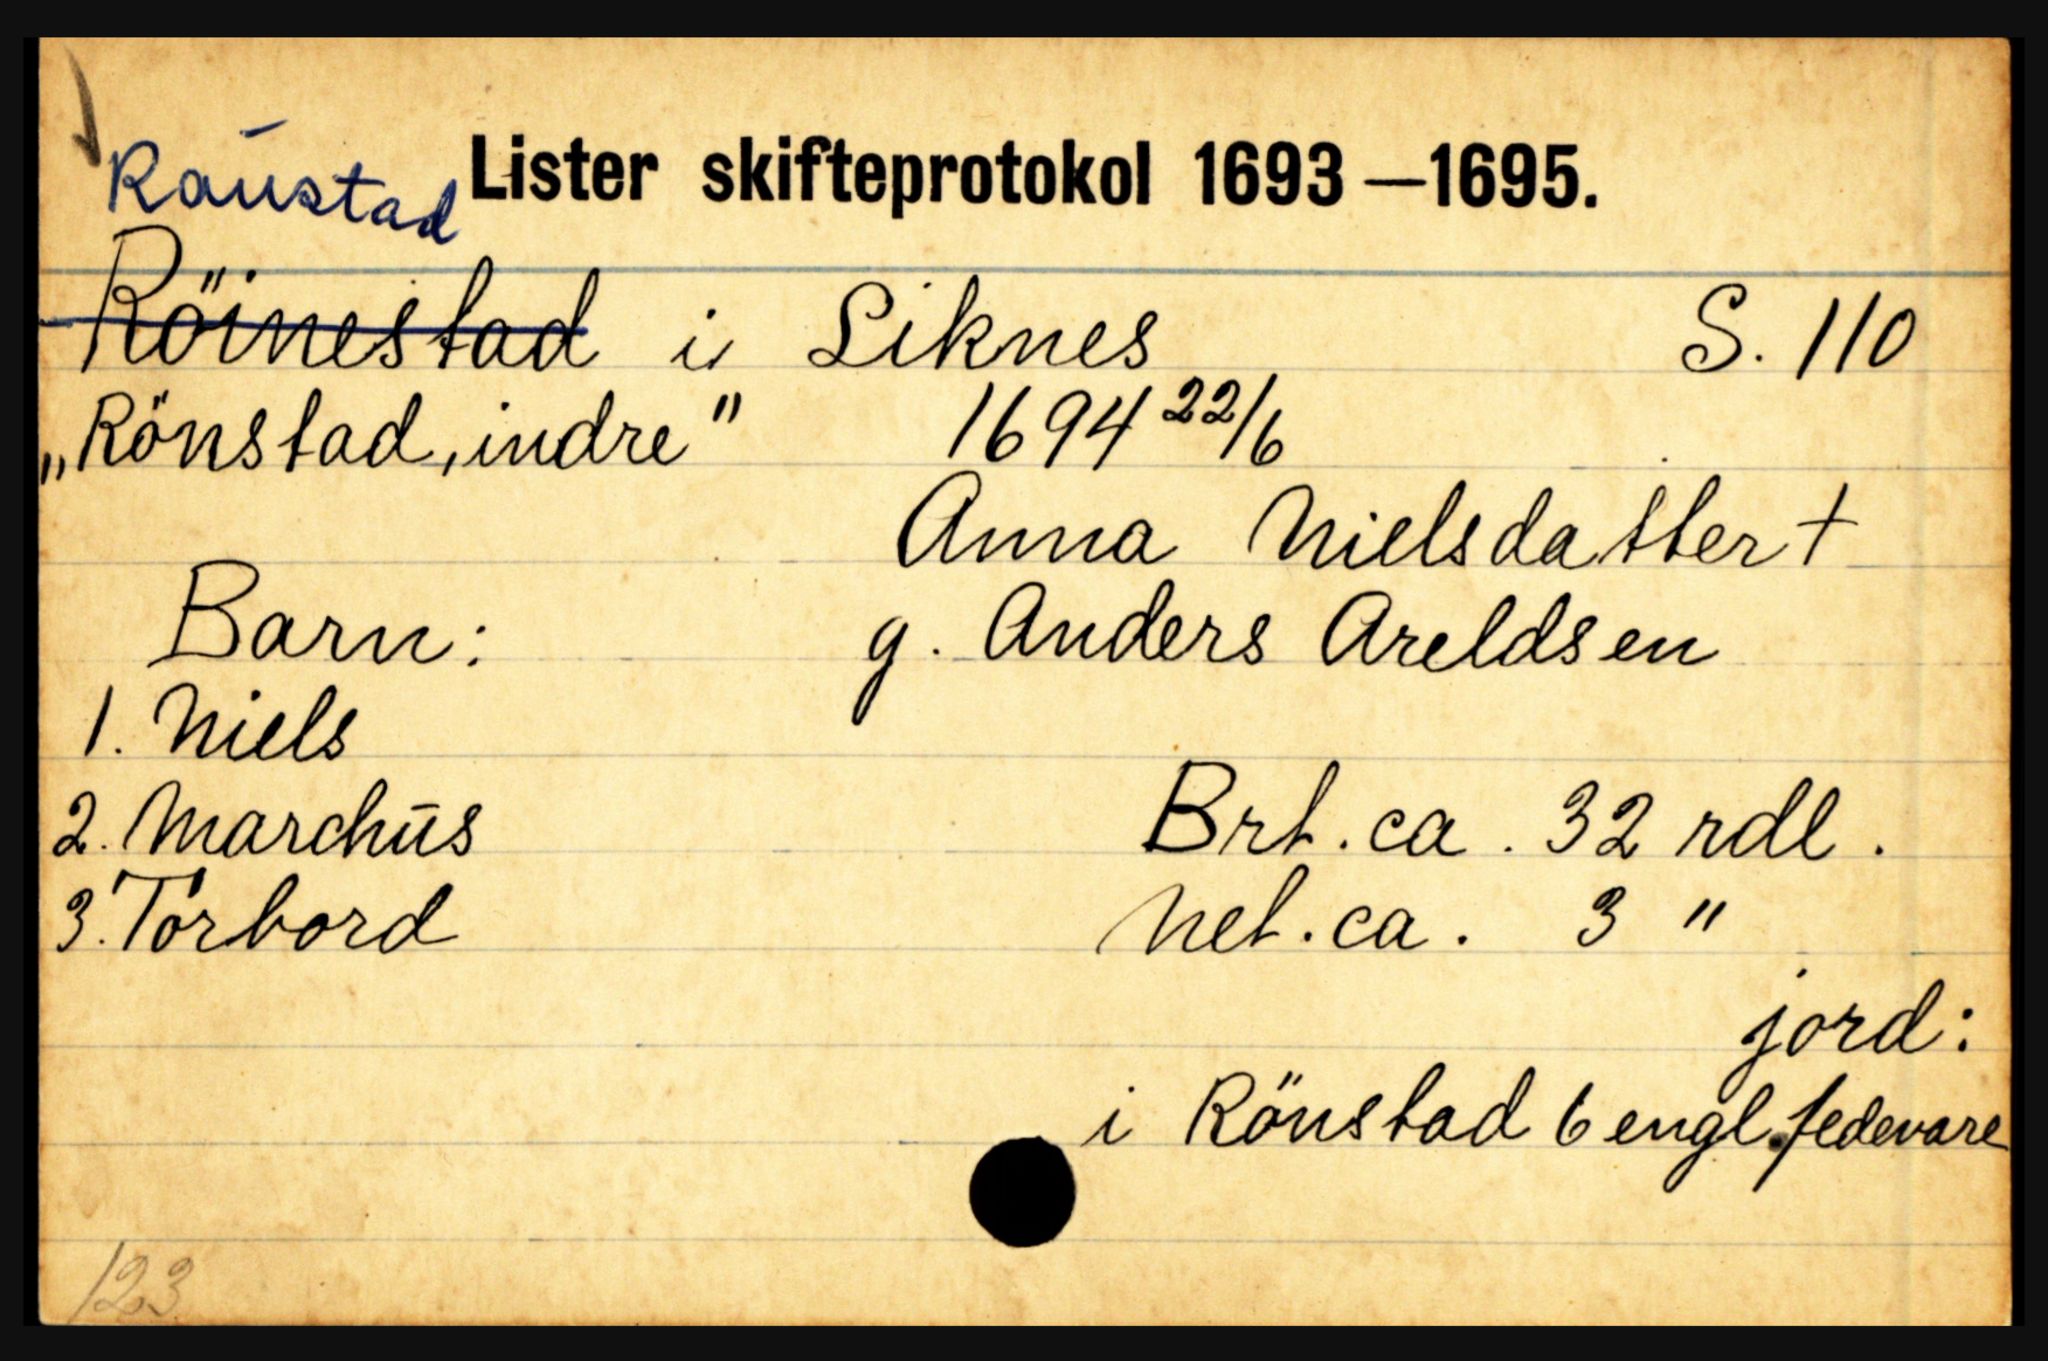 Lister skifteprotokol 1693—1695.
Raustad
Röinestad i Liknes S. 110
„Rönstad, indre" 1694 22/6
Anna Nielsdatter †
Barn: g. Anders Areldsen
1. Niels
2. Marchus Brt. ca. 32 rdl.
3. Torbord Net. ca. 3 "
jord:
i Rönstad 6 engl. fedevare
123